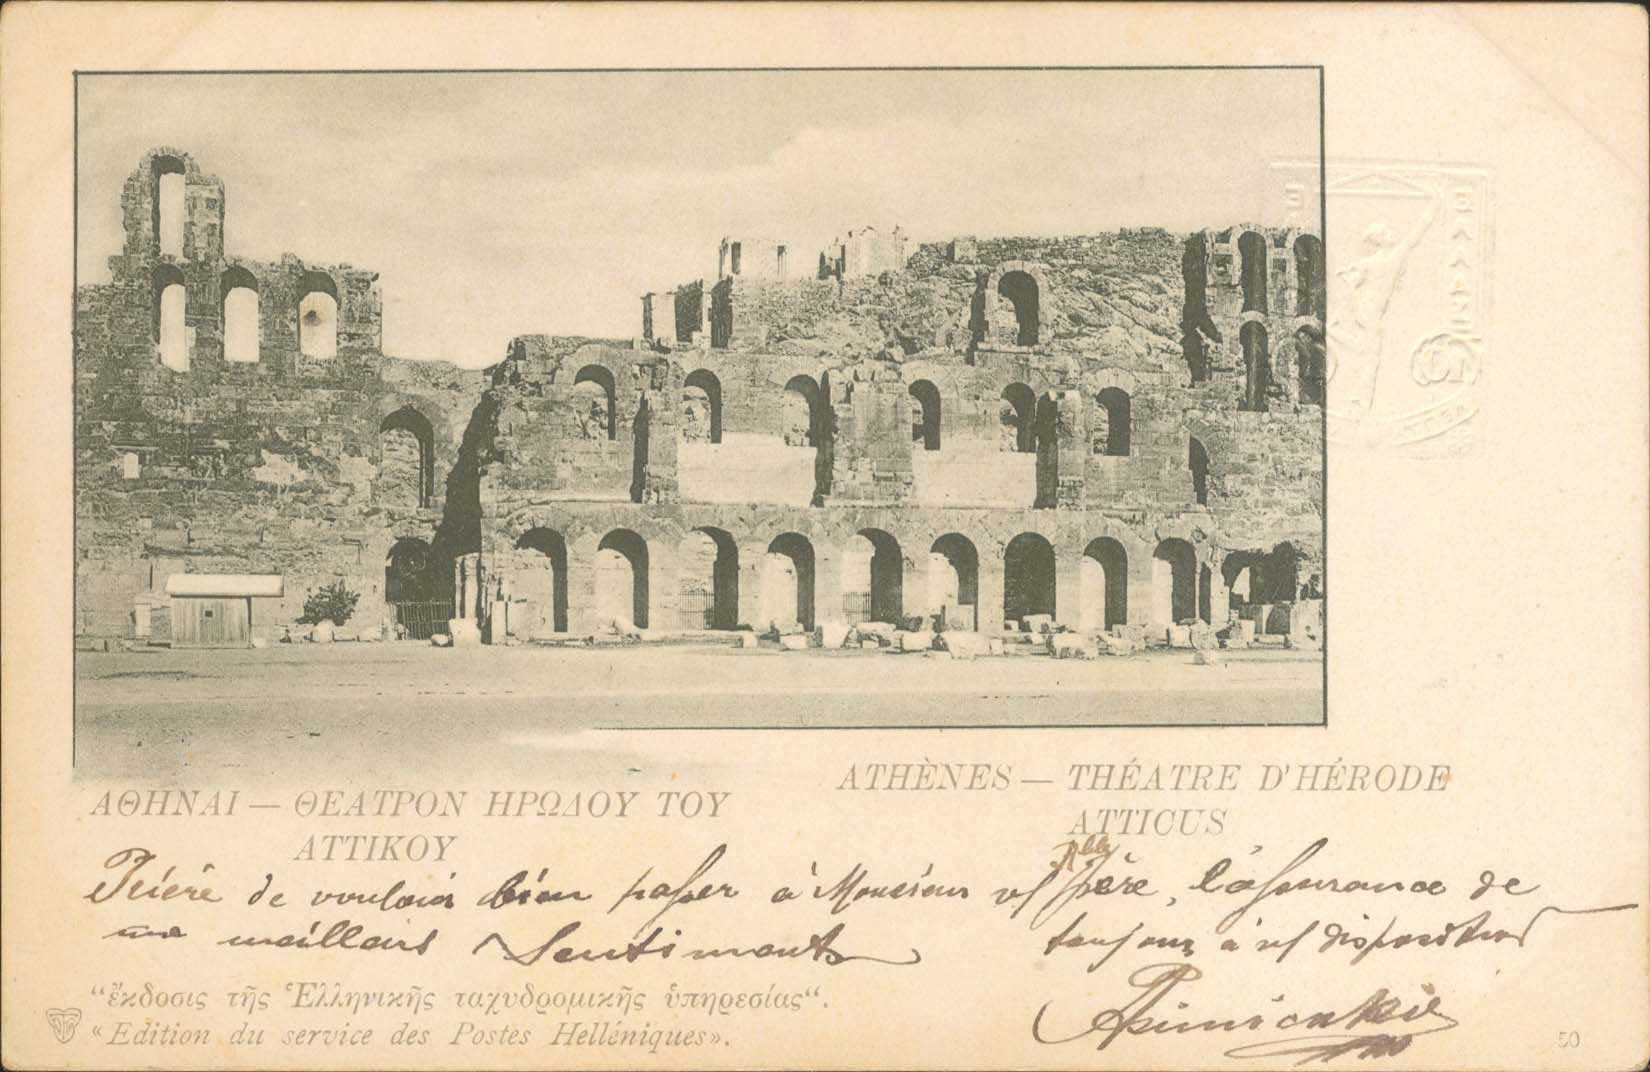 ΕΛΛΑΣ
ΑΘΗΝΑΙ — ΘΕΑΤΡΟΝ ΗΡΩΔΟΥ ΤΟΥ
ΑΤΤΙΚΟΥ
ATHÈNES — THÉATRE D'HÉRODE
ATTICUS
Prière de vouloir bien passer à Monsieur père, l'assurance de
meilleurs Sentiments
toujours à disposition
“ἔκδοσις τῆς Ἑλληνικῆς ταχυδρομικῆς ὑπηρεσίας“.
«Edition du service des Postes Helléniques».
50